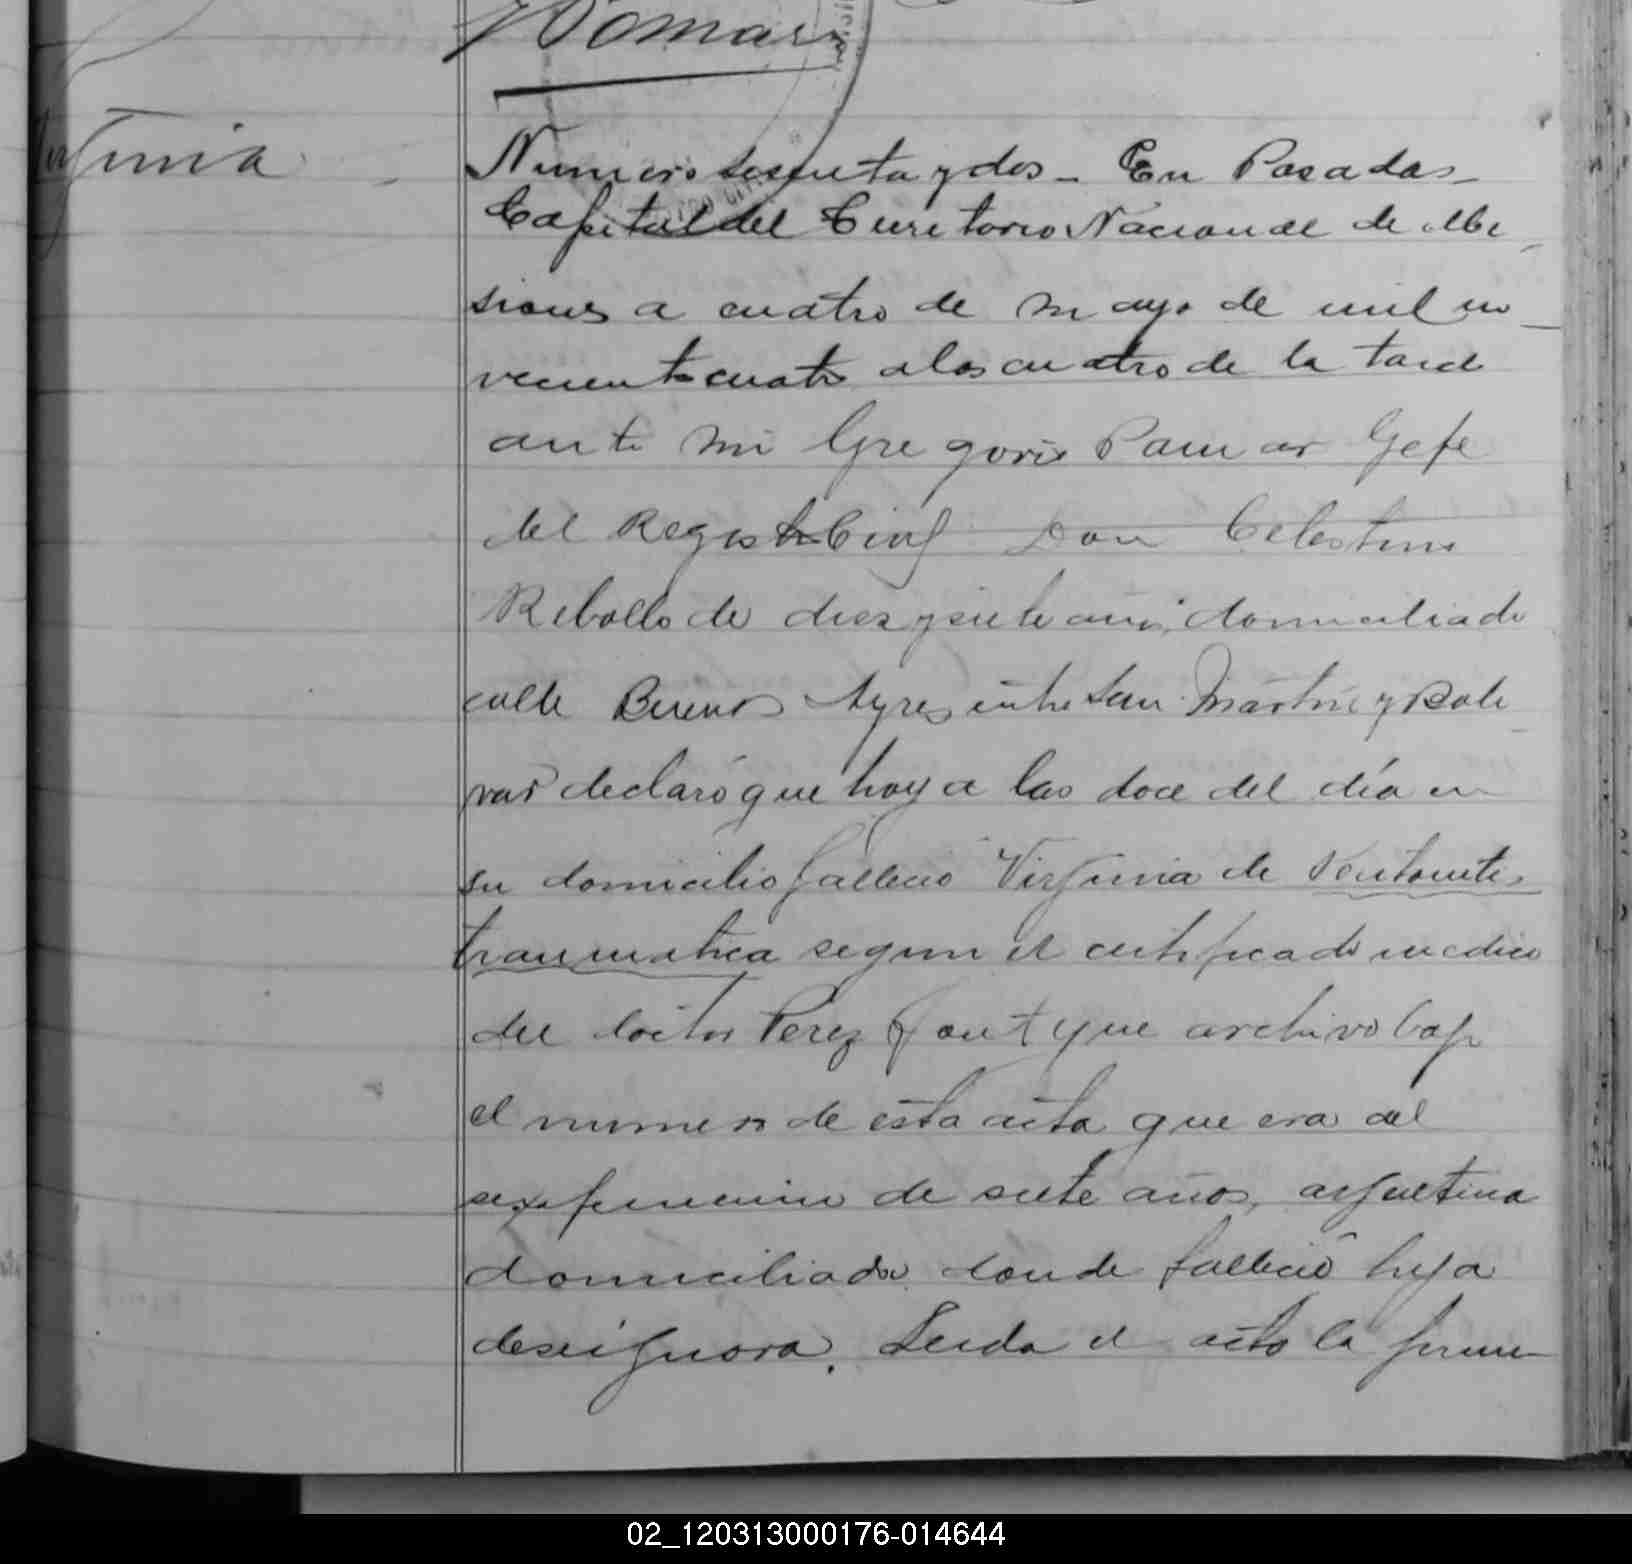 Pomar
Virginia
Numero sesenta y dos - En Posadas
Capital del Territorio Nacional de Mi
siones a cuatro de mayo de mil no
vecientos cuatro a las cuatro de la tarde
ante mi Gregorio Pomar Gefe
del Registro Civil Don Celestino
Rebollo de diez y siete años, domiciliado
calle Buenos Ayres entre San Martin y Boli
var declaró que hoy a las doce del día en
su domicilio falleció Virginia de Peritonitis
traumatica segun el certificado medico
del doctor Perez Font que archivo bajo
el numero de esta acta que era del
sexo femenino de siete años, argentina
domiciliada donde falleció hija
de Leida el acta la firma
02_120313000176-014644